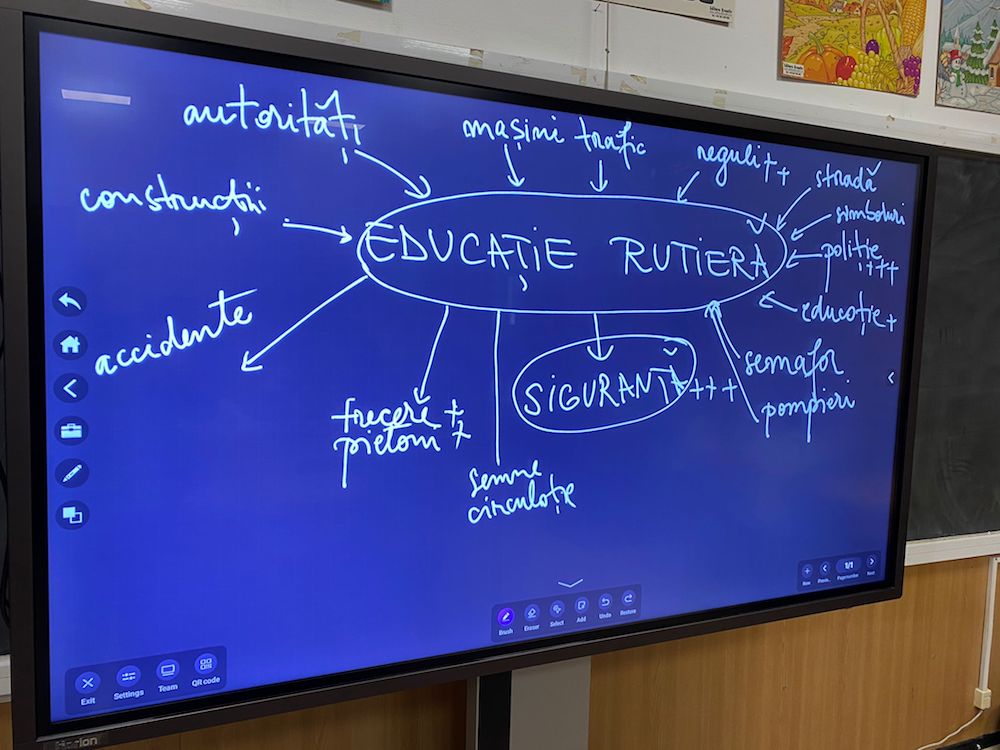 autorități
mașini
trafic
reguli ++
stradă
simboluri
poliție
+++
educație +
construcții
EDUCAȚIE RUTIERĂ
accidente
trecere +
pietoni +
+
semne
circulație
SIGURANȚĂ +++
semafor
pompieri
1/1
New
Previo..
Page number
Next
Brush
Eraser
Select
Add
Undo
Restore
Exit
Settings
Team
QR code
Horion